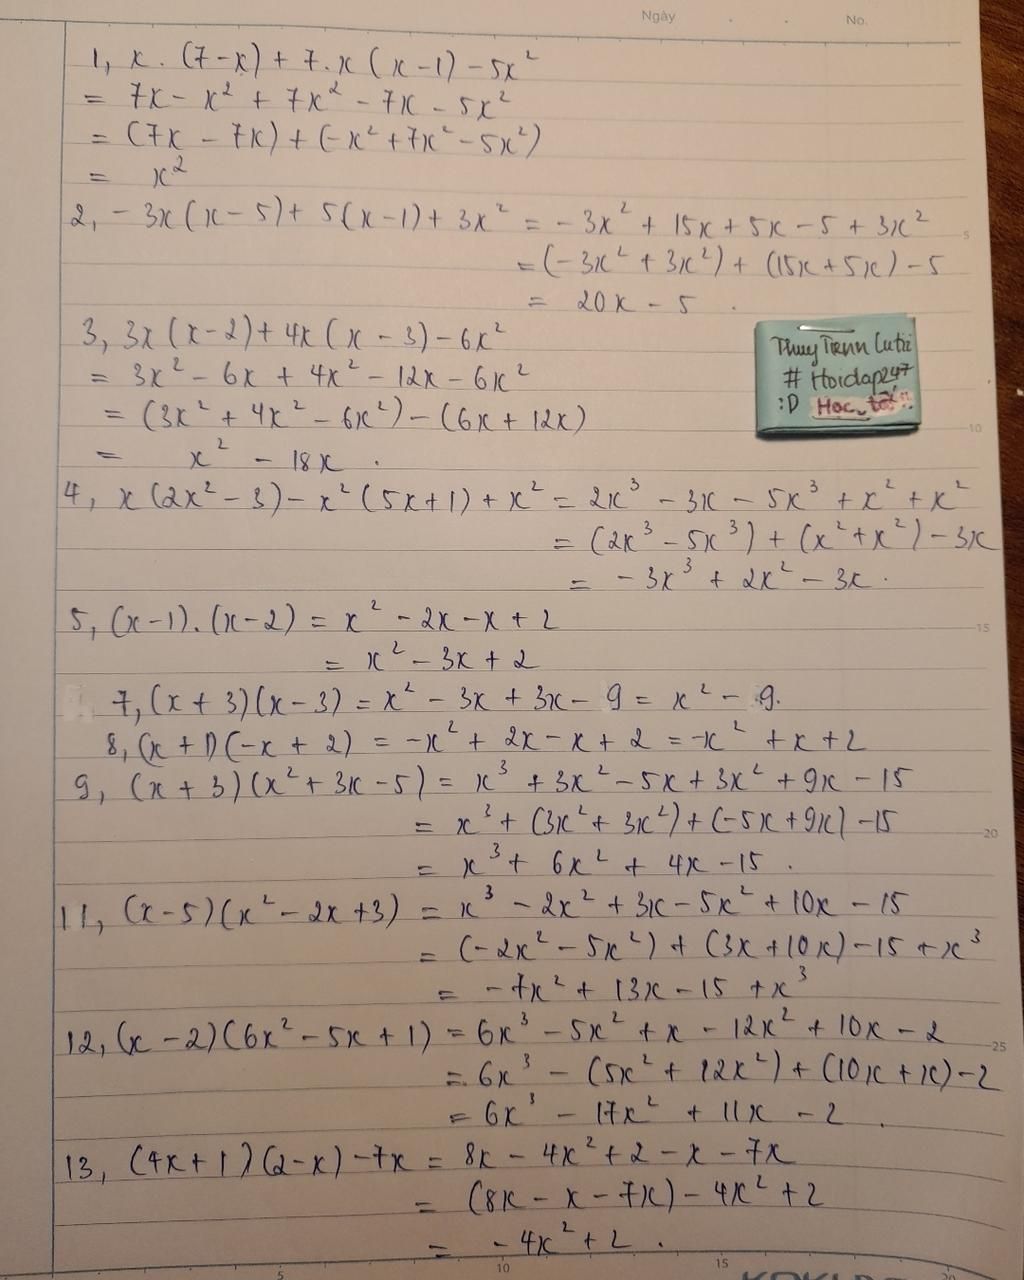 Ngày . . No.
1, x . (7-x) + 7.x (x-1) - 5x²
= 7x - x² + 7x² - 7x - 5x²
= (7x - 7x) + (-x² + 7x² - 5x²)
= x²
2, - 3x(x-5) + 5(x-1) + 3x² = - 3x² + 15x + 5x - 5 + 3x²
= (-3x² + 3x²) + (15x + 5x) - 5
= 20x - 5 .
3, 3x(x-2) + 4x(x-3) - 6x²
= 3x² - 6x + 4x² - 12x - 6x²
= (3x² + 4x² - 6x²) - (6x + 12x)
= x² - 18x .
Thuy Trann Cutii
# Hoidap247
:D Học tốt!!
4, x(2x² - 3) - x²(5x+1) + x² = 2x³ - 3x - 5x³ + x² + x²
= (2x³ - 5x³) + (x² + x²) - 3x
= - 3x³ + 2x² - 3x .
5, (x-1).(x-2) = x² - 2x - x + 2
= x² - 3x + 2
7, (x + 3)(x - 3) = x² - 3x + 3x - 9 = x² - 9.
8, (x + 1)(-x + 2) = -x² + 2x - x + 2 = -x² + x + 2
9, (x + 3)(x² + 3x - 5) = x³ + 3x² - 5x + 3x² + 9x - 15
= x³ + (3x² + 3x²) + (-5x + 9x) - 15
= x³ + 6x² + 4x - 15 .
11, (x-5)(x² - 2x + 3) = x³ - 2x² + 3x - 5x² + 10x - 15
= (-2x² - 5x²) + (3x + 10x) - 15 + x³
= - 7x² + 13x - 15 + x³
12, (x - 2)(6x² - 5x + 1) = 6x³ - 5x² + x - 12x² + 10x - 2
= 6x³ - (5x² + 12x²) + (10x + x) - 2
= 6x³ - 17x² + 11x - 2 .
13, (4x + 1)(2-x) - 7x = 8x - 4x² + 2 - x - 7x
= (8x - x - 7x) - 4x² + 2
= - 4x² + 2 .
5 10 15
5
10
15
20
25